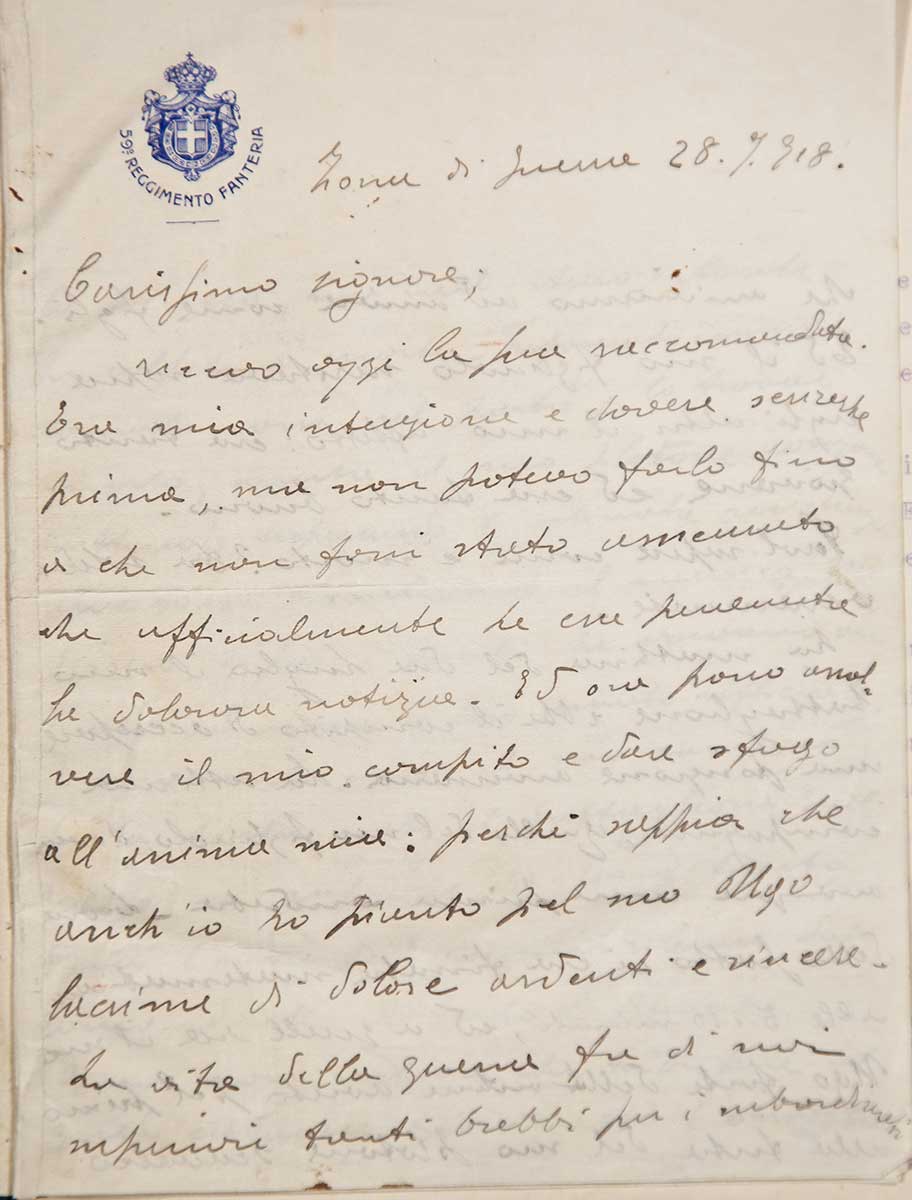 59º REGGIMENTO FANTERIA
Zona di guerra 28.7.918.
Carissimo signore;
ricevo oggi la sua raccomandata.
Era mia intenzione e dovere scriverle
prima, ma non potevo farlo fino
a che non fossi stato assicurato
che ufficialmente le era pervenuta
la dolorosa notizia. Ed ora posso assol-
vere il mio compito e dare sfogo
all'anima mia: perché sappia che
anch'io ho pianto pel suo Ugo
lacrime di dolore ardenti e sincere.
La vita della guerra fa di noi
superiori tanti babbi per i subordinati